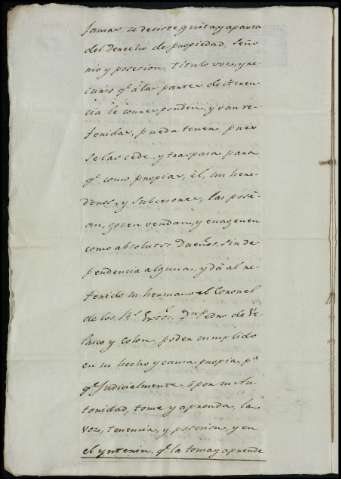 Jamas se desiste quita y aparta
del derecho de propiedad, Seño
rio y posesion, titulo voz, y re
curso qe. á las partes de
cia le corresponden y van re
tenidas, pueda tener, pues
se las cede y traspasa para
qe. como propias, él, sus here
deros, y subcesores, las posé
an, gocen vendan, y enagenen
como absolutos Dueños, sin de
pendencia alguna, y dá al re
ferido su hermano el Coronel
de los Rs. Extos. Dn. Pedro de Ve
lasco y Colon, poder cumplido
en su hecho y causa propia, pa.
qe. Judicialmente ó por su Au
toridad, tome y aprenda, la
voz, tenencia, y posesion, y en
el ynterin, qe. la toma y aprende